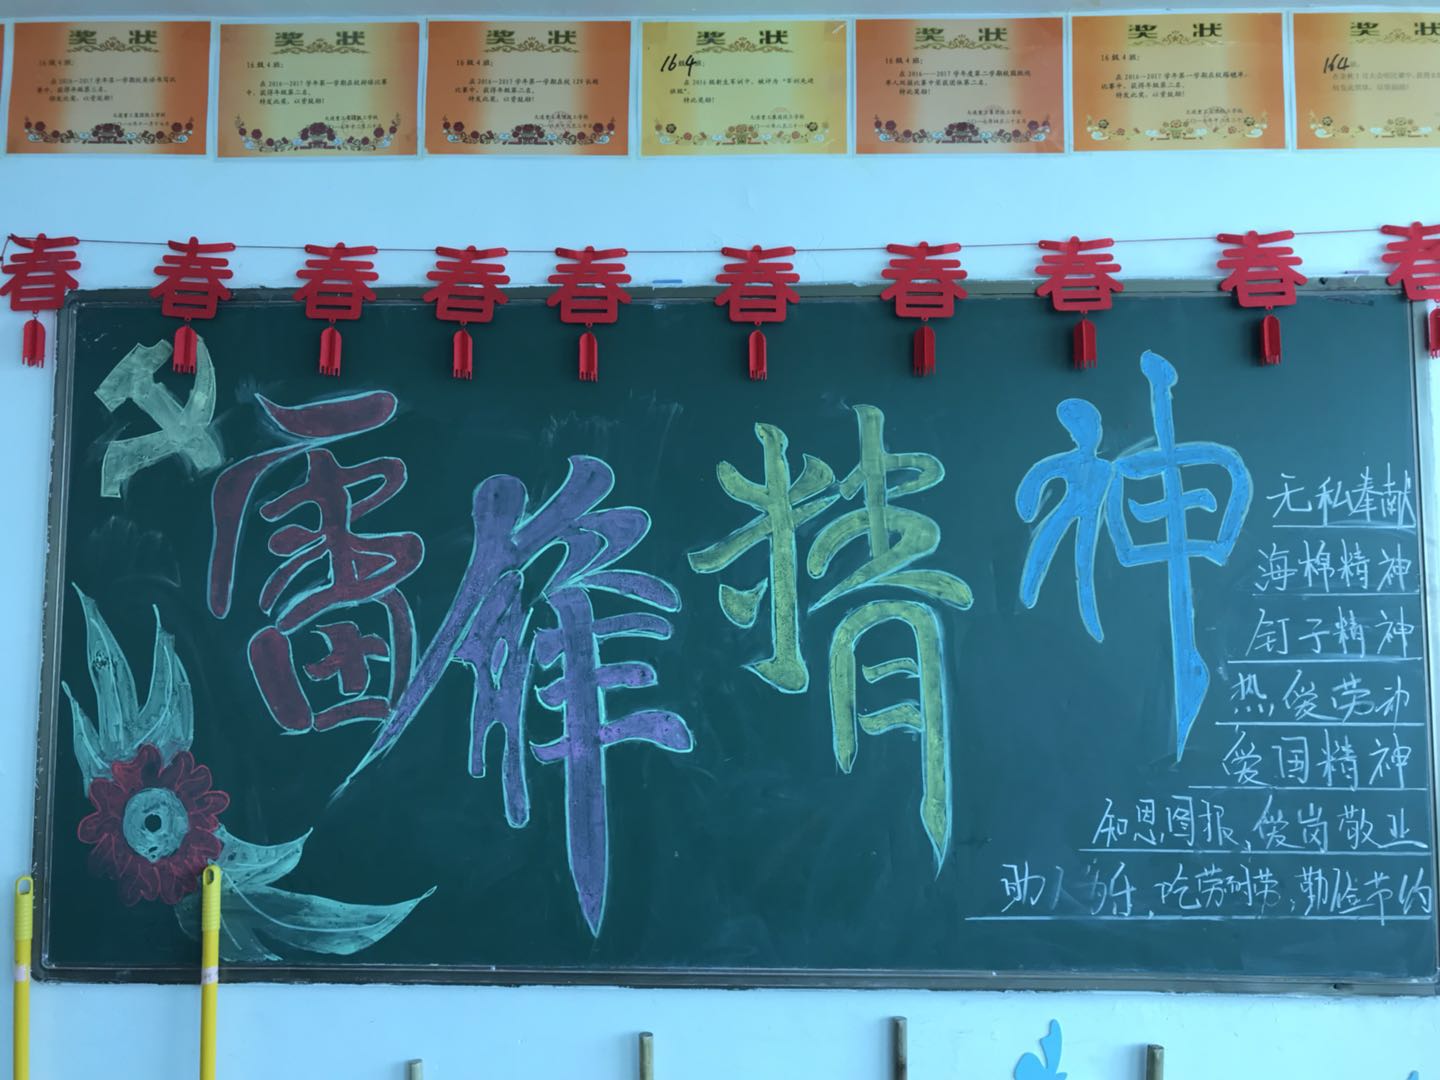 奖状
16级4班:
在2016-2017学年第一学期校英语书写比
赛中,获得年级第三名。
特发此奖,以资鼓励!
奖状
16级4班:
在2016-2017学年第一学期在校
比赛
中,获得年级第二名。
特发此奖,以资鼓励!
奖状
16级4班:
在2016-2017学年第一学期在校129长跑
比赛中,获得年级第二名。
特发此奖,以资鼓励!
奖状
16级4班:
在2016级新生军训中,被评为“军训先进
班级”。
特此奖励!
奖状
16级4班:
在2016--2017学年度第二学期校园跳绳
单人双摇比赛中荣获团体第二名。
特发此奖,以资鼓励!
奖状
16级4班:
在2016-2017学年第一学期在校
比赛中,获得年级第二名。
特发此奖,以资鼓励!
奖状
164班:
春 春 春 春 春 春 春 春 春 春
雷锋精神
无私奉献
海棉精神
钉子精神
热爱劳动
爱国精神
知恩图报、爱岗敬业
助人为乐、吃劳耐劳、勤俭节约